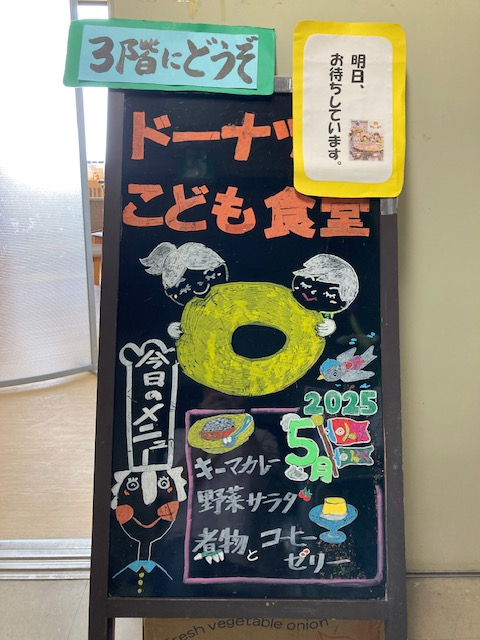 3階にどうぞ
明日、
お待ちしています。
ドーナツ
こども食堂
今日のメニュー
2025
5月
キーマカレー
野菜サラダ
煮物とコーヒー
ゼリー
fresh vegetable onion